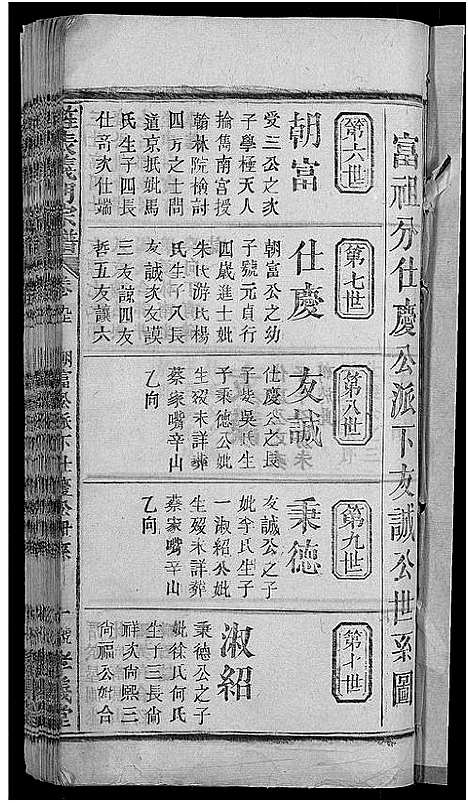 富祖分仕慶公派下友誠公世系圖
第六世
朝富
愛三公之次
子學極天人
掄雋南宮授
翰林院檢討
四方之士問
道京抵妣馬
氏生子四長
仕奇次仕端
第七世
仕慶
朝富公之幼
子號元貞行
四歲進士妣
朱氏游氏楊
氏生子八長
友誠次友謨
三友諒四友
哲五友讓六
第八世
友誠
仕慶公之長
子妣吳氏生
子秉德公妣
生殁未詳葬
蔡家嘴辛山
乙向
第九世
秉德
友誠公之子
妣李氏生子
一淑紹公妣
生殁未詳葬
蔡家嘴辛山
乙向
第十世
淑紹
秉德公之子
妣徐氏何氏
生子三長尙
祥次尙熙三
尙福公妣合
宗譜
朝富公派下仕慶公世系
孝義堂